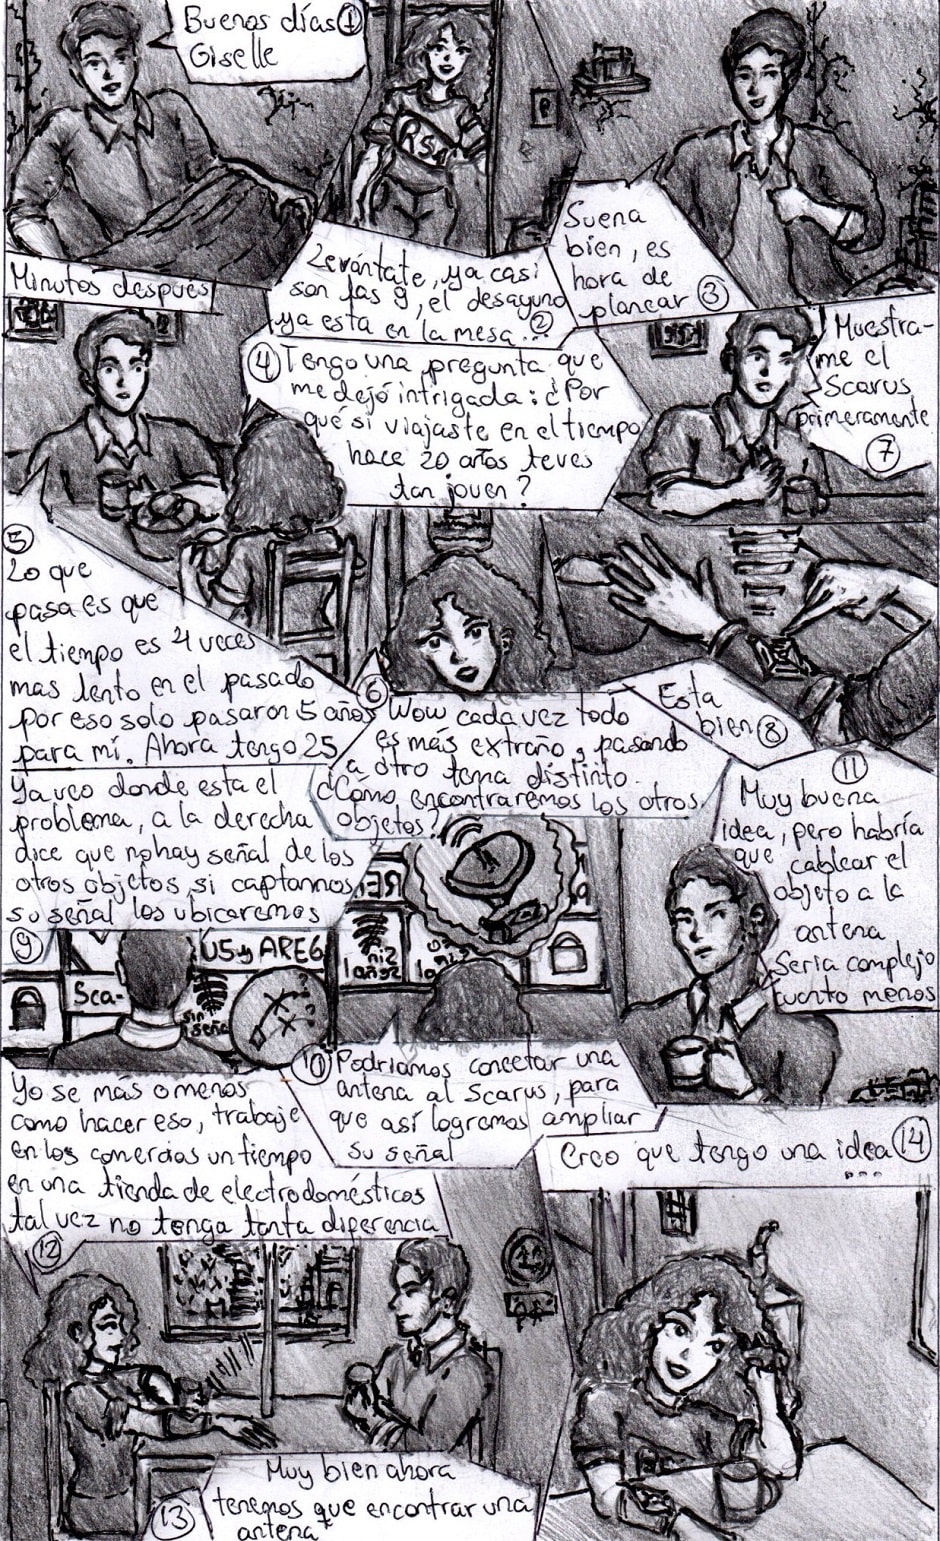 Buenos días ①
Giselle
RSA
Levántate, ya casi
son las 9, el desayuno
ya esta en la mesa... ②
Suena
bien, es
hora de
planear ③
Minutos después
④ Tengo una pregunta que
me dejó intrigada: ¿Por
qué si viajaste en el tiempo
hace 20 años te ves
tan joven?
⑤
Lo que
pasa es que
el tiempo es 4 veces
mas lento en el pasado
por eso solo pasaron 5 años
para mí. Ahora tengo 25
⑥ Wow cada vez todo
es más extraño, pasando
a otro tema distinto.
¿Cómo encontraremos los otros
objetos?
Muestra-
me el
Scarus
primeramente
⑦
Esta
bien ⑧
Ya veo donde esta el
problema, a la derecha
dice que no hay señal de los
otros objetos, si captamos
su señal los ubicaremos
⑨
US y AREG
Sca-
sin
seña
⑩ Podríamos conectar una
antena al Scarus, para
que así logremos ampliar
su señal
⑪
Muy buena
idea, pero habría
que cablear el
objeto a la
antena
Seria complejo
cuento menos
Yo se más o menos
como hacer eso, trabaje
en los comercios un tiempo
en una tienda de electrodomésticos
tal vez no tenga tanta diferencia
⑫
⑬ Muy bien ahora
tenemos que encontrar una
antena
Creo que tengo una idea ⑭
...